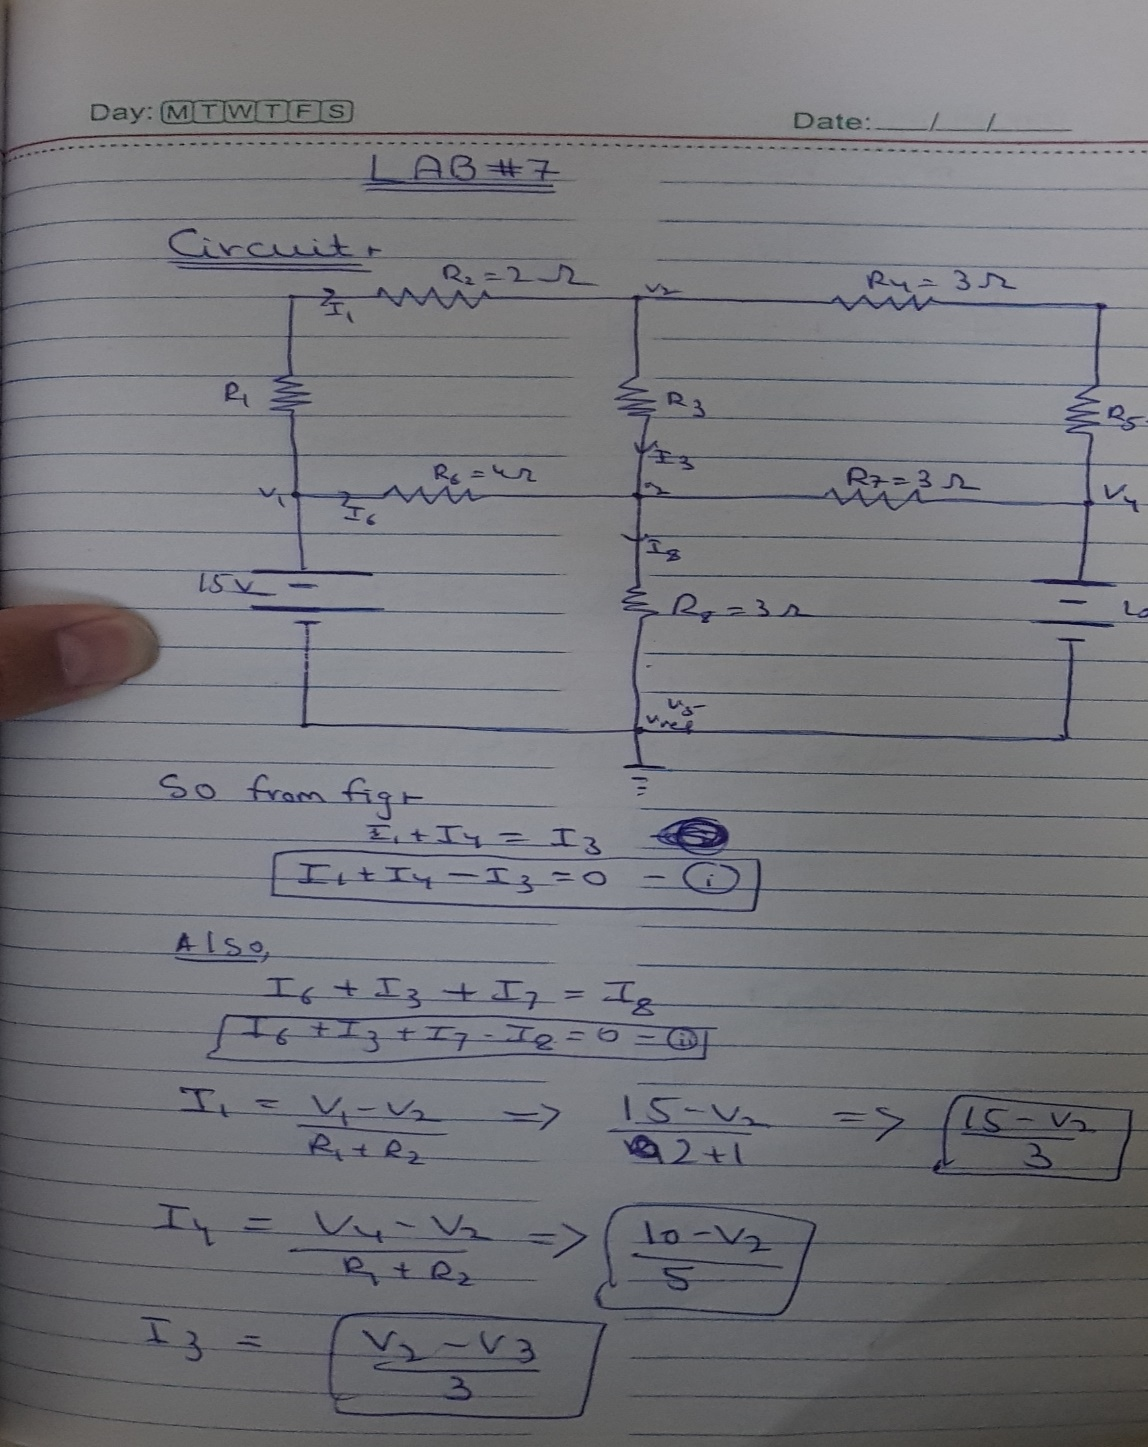 Day: M T W T F S
Date: __/__/____
LAB #7
Circuit:
R₂ = 2 Ω
V₂
R₄ = 3 Ω
I₁
R₁
R₃
R₅
I₃
R₆ = 4Ω
R₇ = 3 Ω
V₁
V₄
I₆
I₈
15V
R₈ = 3 Ω
V₃
Vref
So from fig:
I₁ + I₄ = I₃
I₁ + I₄ - I₃ = 0 - (i)
Also,
I₆ + I₃ + I₇ = I₈
I₆ + I₃ + I₇ - I₈ = 0 - (ii)
I₁ = V₁ - V₂ / R₁ + R₂ => 15 - V₂ / 2+1 => 15 - V₂ / 3
I₄ = V₄ - V₂ / R₁ + R₂ => 10 - V₂ / 5
I₃ = V₂ - V₃ / 3